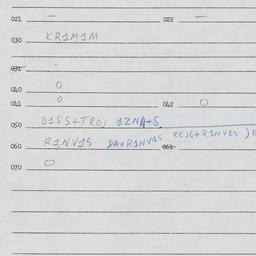 021 — 022 —
030 KR1M1M
031 -
040 0
041 0 042 0
050 D1SS+TRO; 1ZNA+S
REJG+R1NV1S ) R
060 R1NV1S DAKR1NV1S 061
070 0